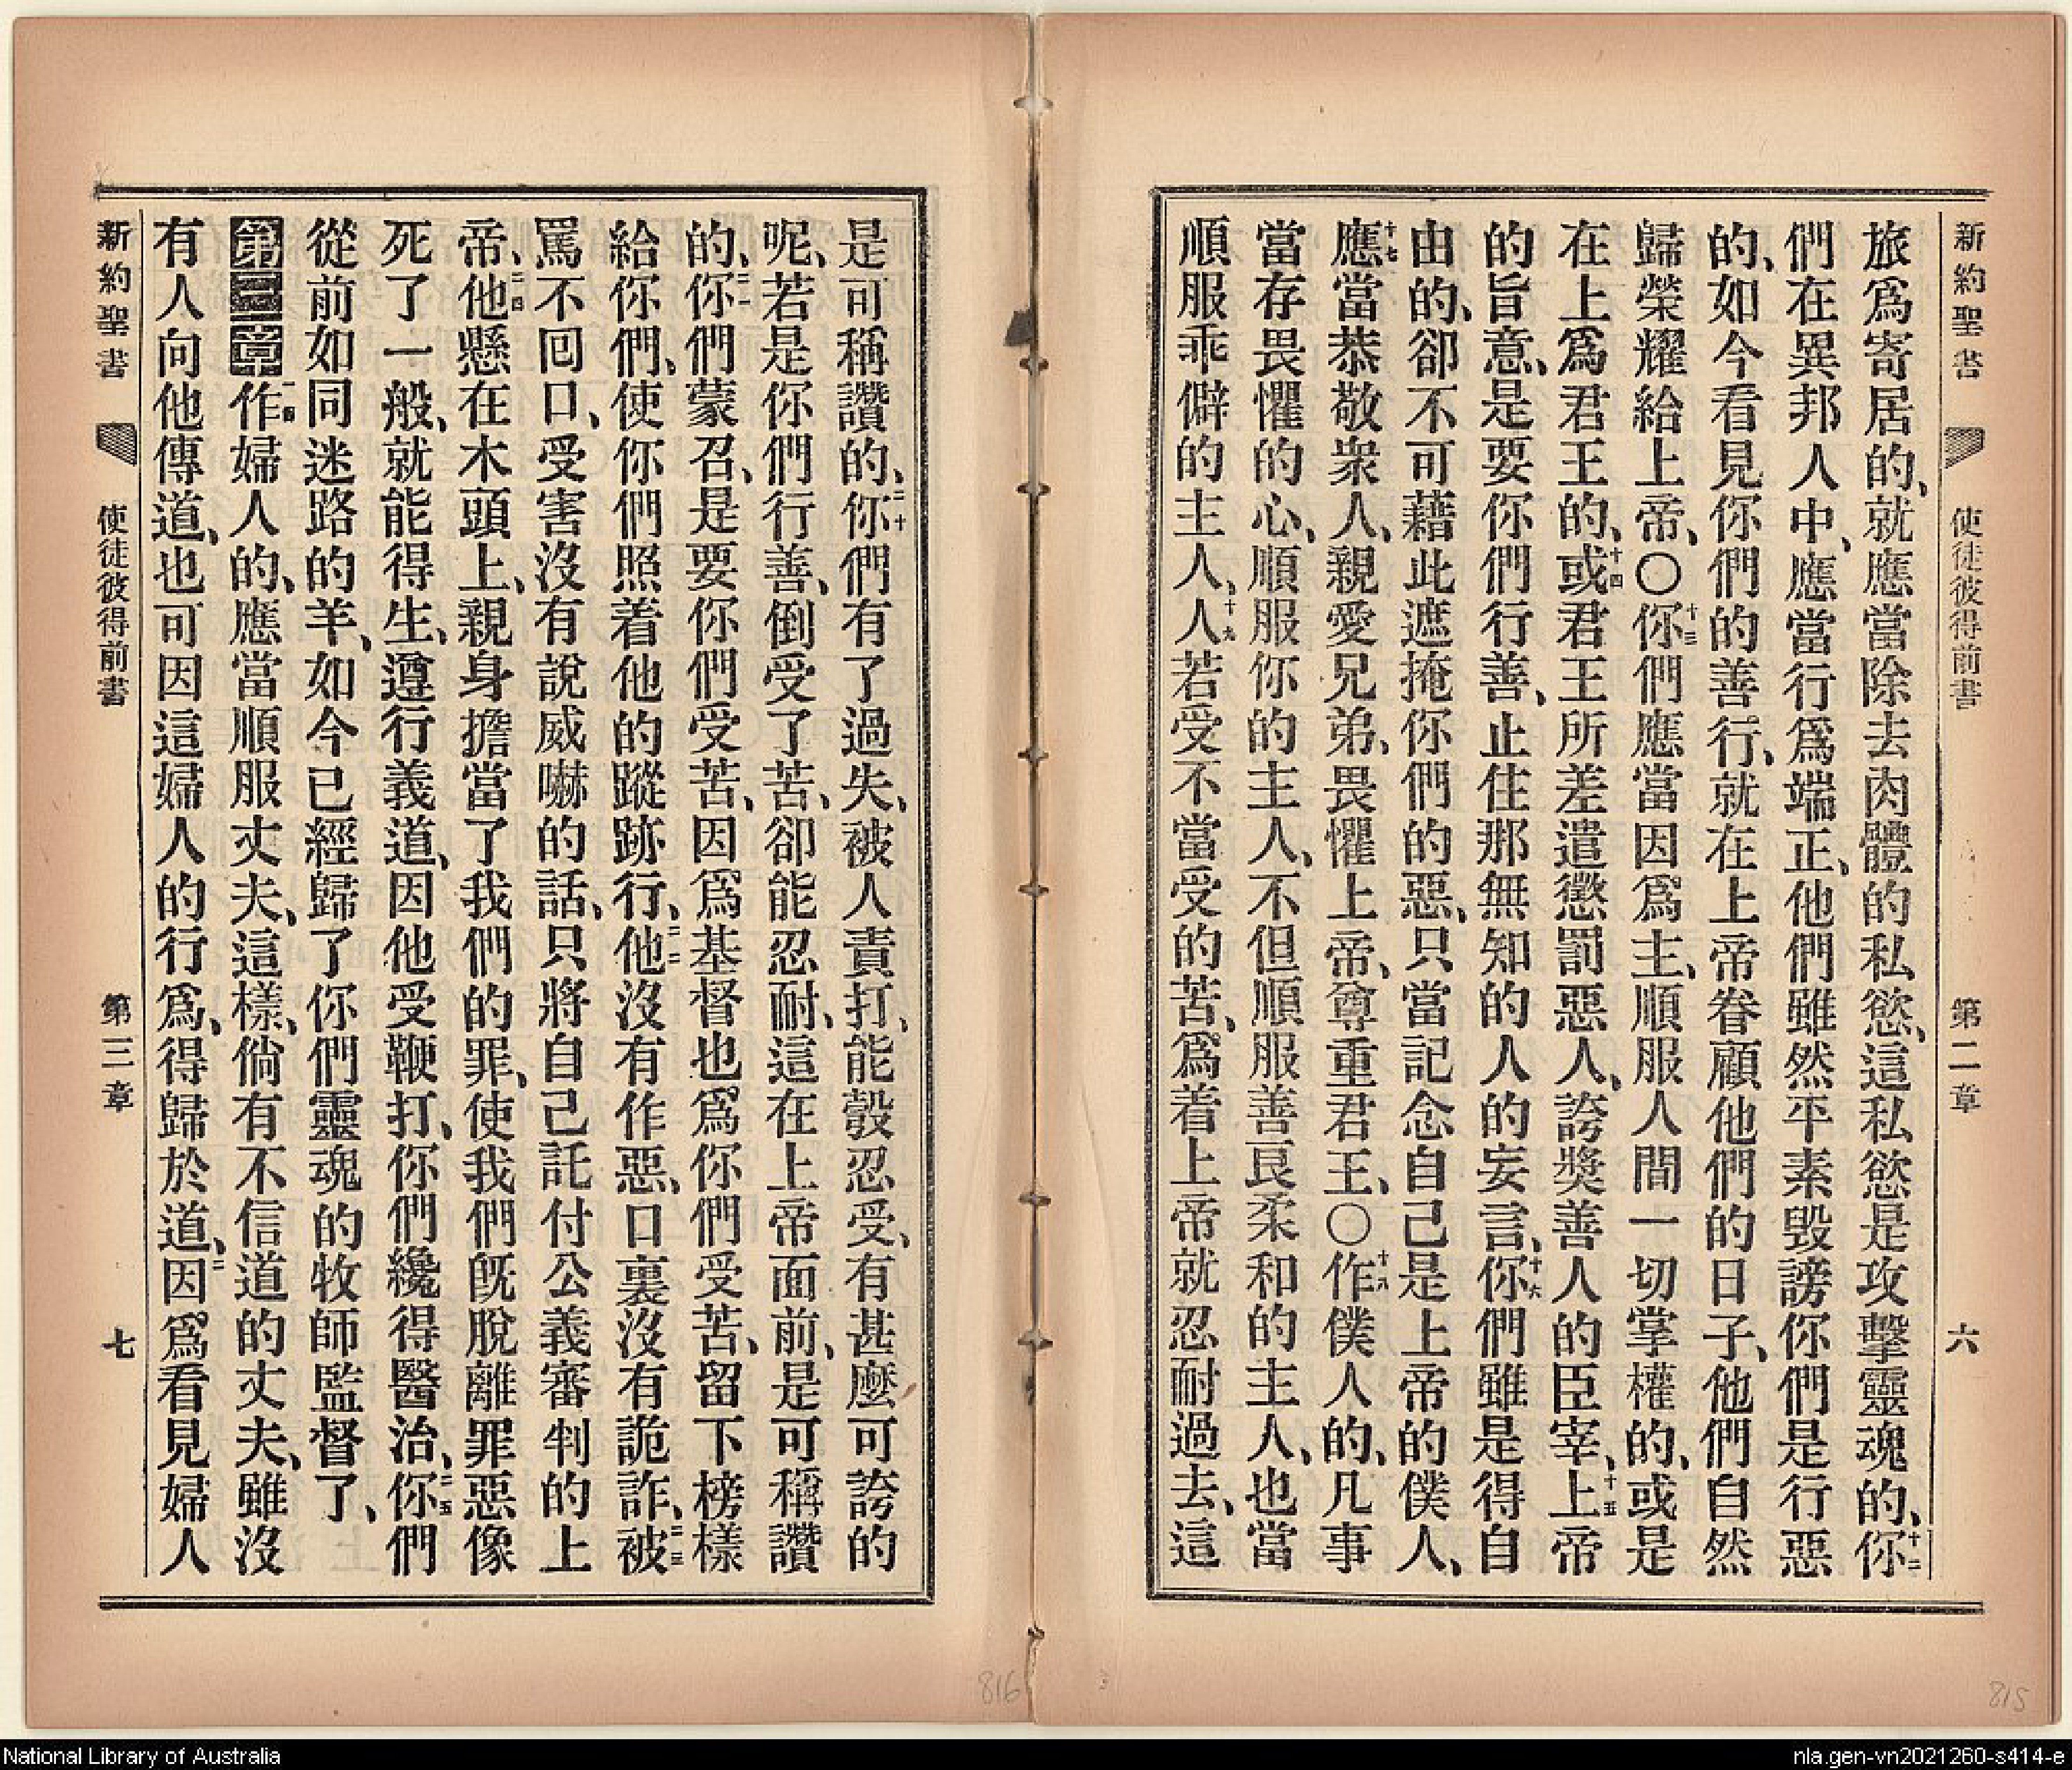 新約聖書 使徒彼得前書 第二章 六
旅爲寄居的、就應當除去肉體的私慾、這私慾是攻擊靈魂的、十二你
們在異邦人中、應當行爲端正、他們雖然平素毀謗你們是行惡
的、如今看見你們的善行、就在上帝眷顧他們的日子、他們自然
歸榮耀給上帝、〇十三你們應當因爲主、順服人間一切掌權的、或是
在上爲君王的、十四或君王所差遣懲罰惡人、誇獎善人的臣宰、十五上帝
的旨意、是要你們行善、止住那無知的人的妄言、十六你們雖是得自
由的、卻不可藉此遮掩你們的惡、只當記念自己是上帝的僕人、
十七應當恭敬衆人、親愛兄弟、畏懼上帝、尊重君王、〇十八作僕人的、凡事
當存畏懼的心、順服你的主人、不但順服善良柔和的主人、也當
順服乖僻的主人、十九人若受不當受的苦、爲着上帝就忍耐過去、這
是可稱讚的、二十你們有了過失、被人責打、能彀忍受、有甚麼可誇的
呢、若是你們行善、倒受了苦、卻能忍耐、這在上帝面前、是可稱讚
的、二一你們蒙召、是要你們受苦、因爲基督也爲你們受苦、留下榜樣
給你們、使你們照着他的蹤跡行、二二他沒有作惡、口裏沒有詭詐、二三被
罵不回口、受害沒有說威嚇的話、只將自己託付公義審判的上
帝、二四他懸在木頭上、親身擔當了我們的罪、使我們旣脫離罪惡像
死了一般、就能得生、遵行義道、因他受鞭打、你們纔得醫治、二五你們
從前如同迷路的羊、如今已經歸了你們靈魂的牧師監督了、
第三章一節作婦人的、應當順服丈夫、這樣、倘有不信道的丈夫、雖沒
有人向他傳道、也可因這婦人的行爲、得歸於道、二因爲看見婦人
新約聖書 使徒彼得前書 第三章 七
816
815
National Library of Australia
nla.gen-vn2021260-s414-e